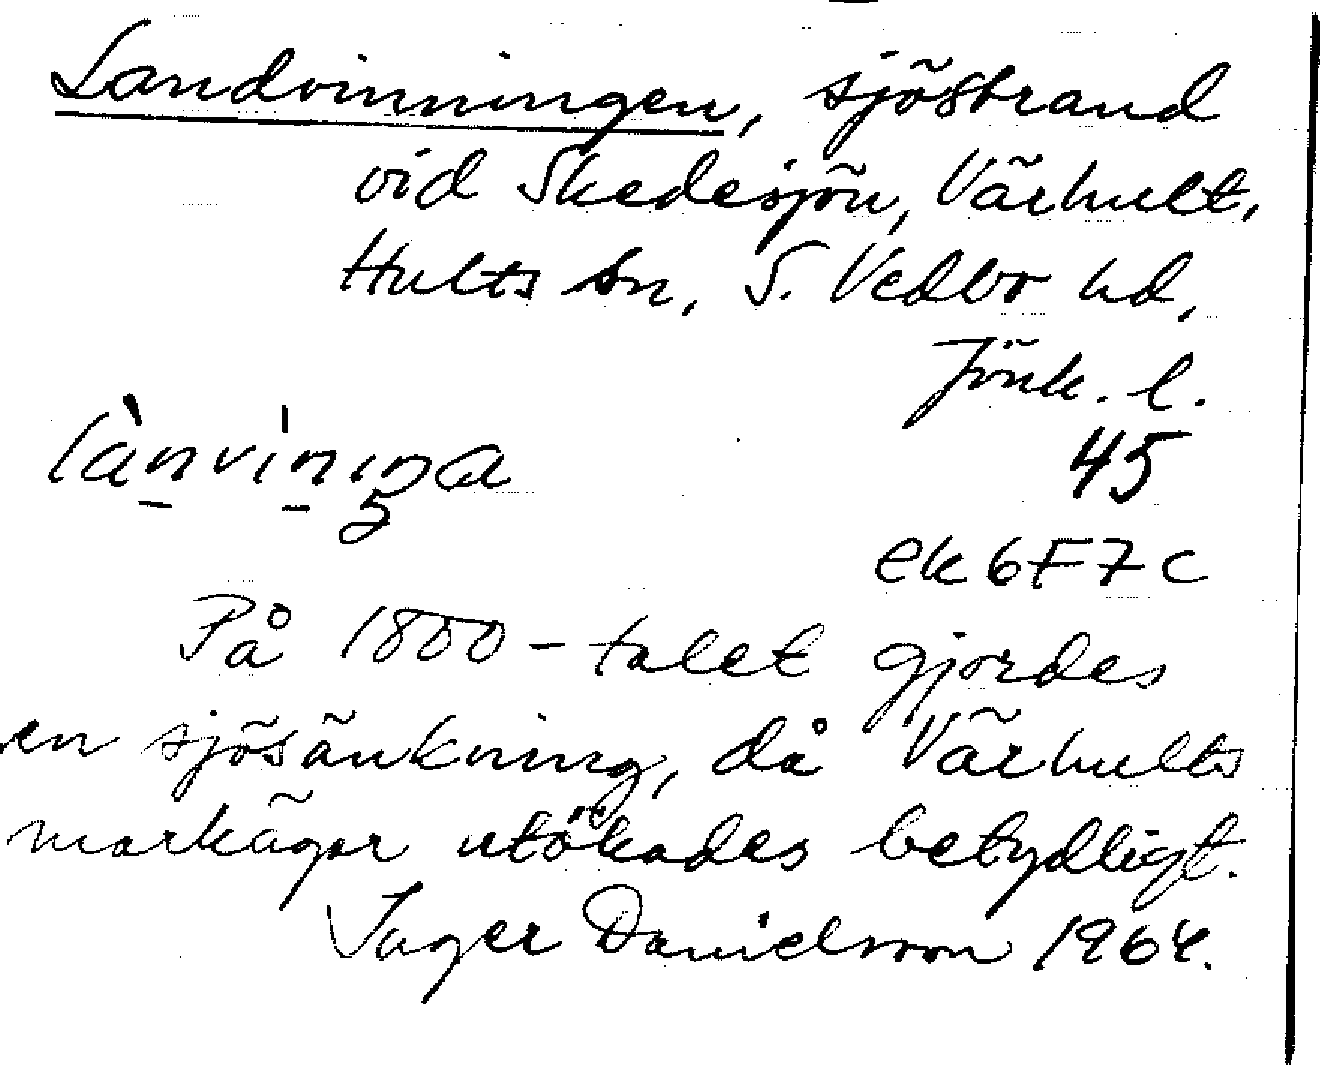 Landvinningen, sjöstrand
vid Skedesjön, Värhult,
Hults sn, S. Vedbo hd,
Jönk. l.
45
lànvìnıŋa
ek 6F7c
På 1800-talet gjordes
en sjösänkning, då Värhults
markägor utökades betydligt.
Inger Danielsson 1964.